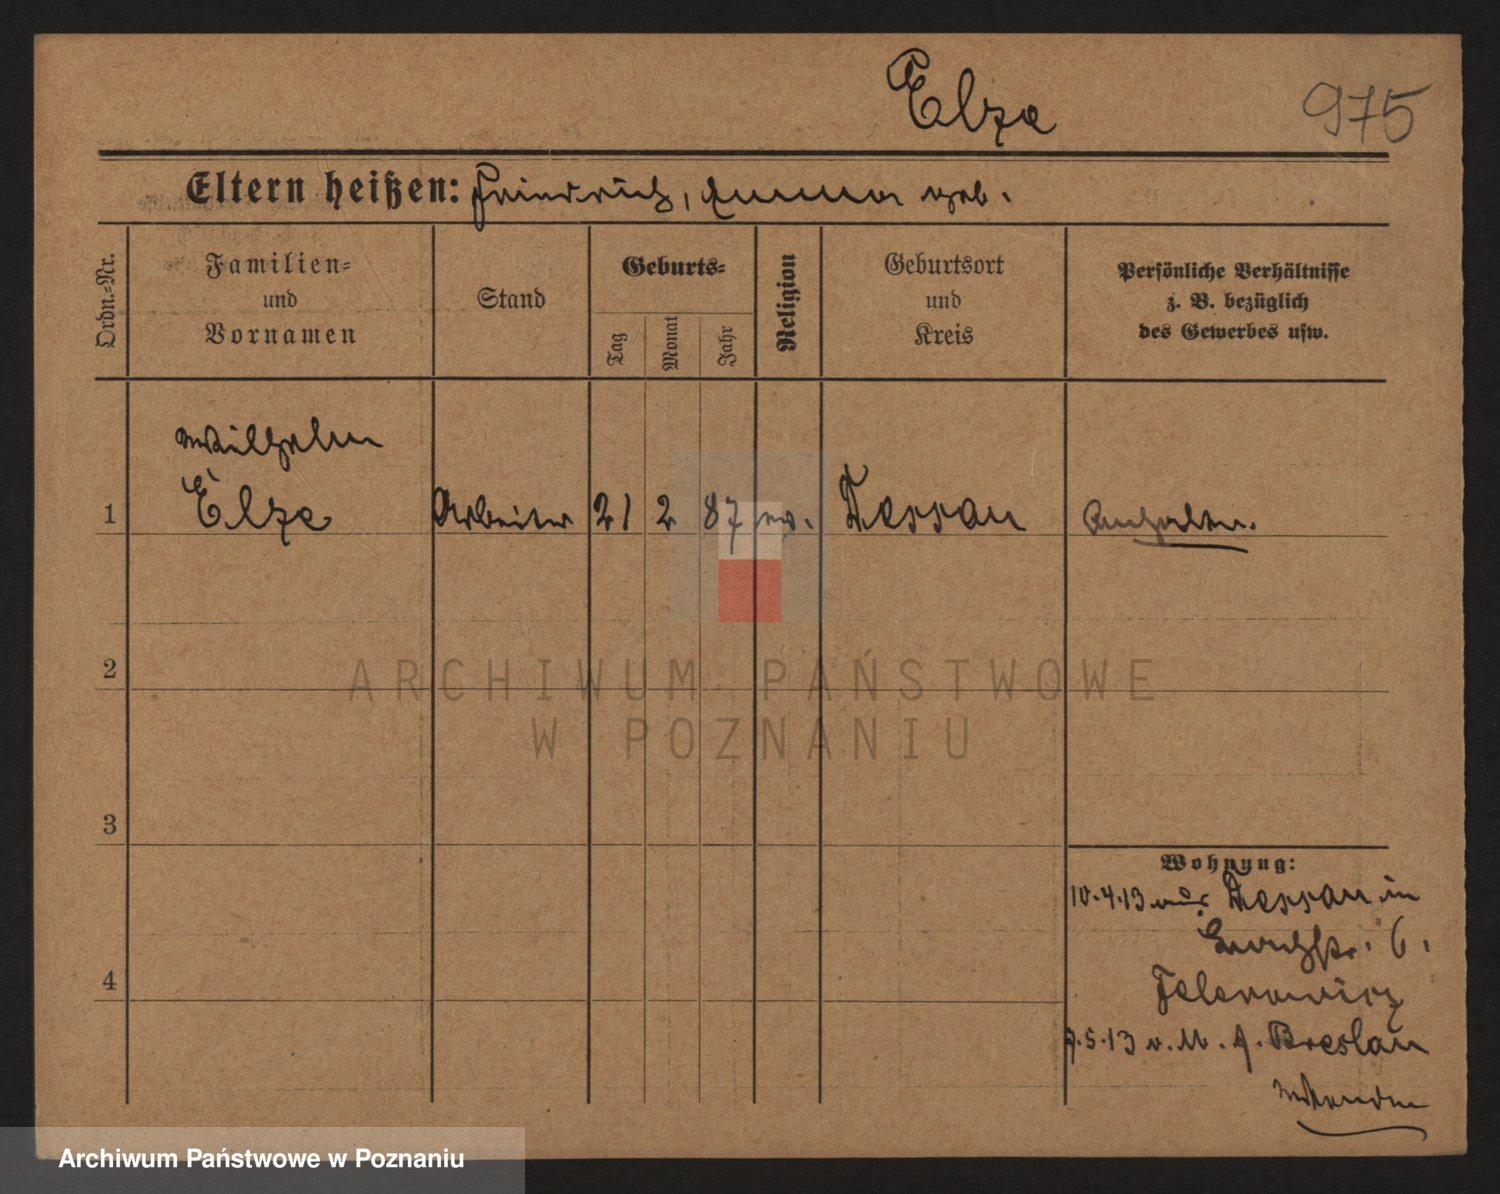 Elze
975
Eltern heißen: Friedrich, Emma geb.
Ordn.-Nr.
Familien-
und
Vornamen
Stand
Geburts-
Tag
Monat
Jahr
Religion
Geburtsort
und
Kreis
Persönliche Verhältnisse
z. B. bezüglich
des Gewerbes usw.
Wilhelm
1 Elze Arbeiter 21 2 87 ev. Dessau Anhalter.
2
3
4
Wohnung:
10.4.13 aus Dessau in
6.
7.5.13 Breslau
ARCHIWUM PAŃSTWOWE
W POZNANIU
Archiwum Państwowe w Poznaniu